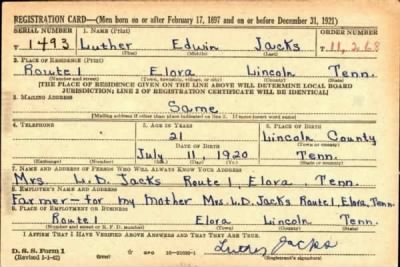 REGISTRATION CARD—(Men born on or after February 17, 1897 and on or before December 31, 1921)
SERIAL NUMBER 1. NAME (Print) ORDER NUMBER
T 1493 Luther Edwin Jacks T 11,268
(First) (Middle) (Last)
2. PLACE OF RESIDENCE (Print)
Route 1 Elora Lincoln Tenn.
(Number and street) (Town, township, village, or city) (County) (State)
[THE PLACE OF RESIDENCE GIVEN ON THE LINE ABOVE WILL DETERMINE LOCAL BOARD
JURISDICTION; LINE 2 OF REGISTRATION CERTIFICATE WILL BE IDENTICAL]
3. MAILING ADDRESS
Same
[Mailing address if other than place indicated on line 2. If same insert word same]
4. TELEPHONE 5. AGE IN YEARS 6. PLACE OF BIRTH
21 Lincoln County
DATE OF BIRTH (Town or county)
July 11 1920 Tenn.
(Exchange) (Number) (Mo.) (Day) (Yr.) (State or country)
7. NAME AND ADDRESS OF PERSON WHO WILL ALWAYS KNOW YOUR ADDRESS
Mrs. L.D. Jacks Route 1, Elora, Tenn.
8. EMPLOYER'S NAME AND ADDRESS
Farmer—for my Mother Mrs. L.D. Jacks Route 1, Elora, Tenn.
9. PLACE OF EMPLOYMENT OR BUSINESS
Route 1 Elora Lincoln Tenn.
(Number and street or R. F. D. number) (Town) (County) (State)
I AFFIRM THAT I HAVE VERIFIED ABOVE ANSWERS AND THAT THEY ARE TRUE.
D. S. S. Form 1
(Revised 1-1-42) (over) Luther Jacks
(Registrant's signature)